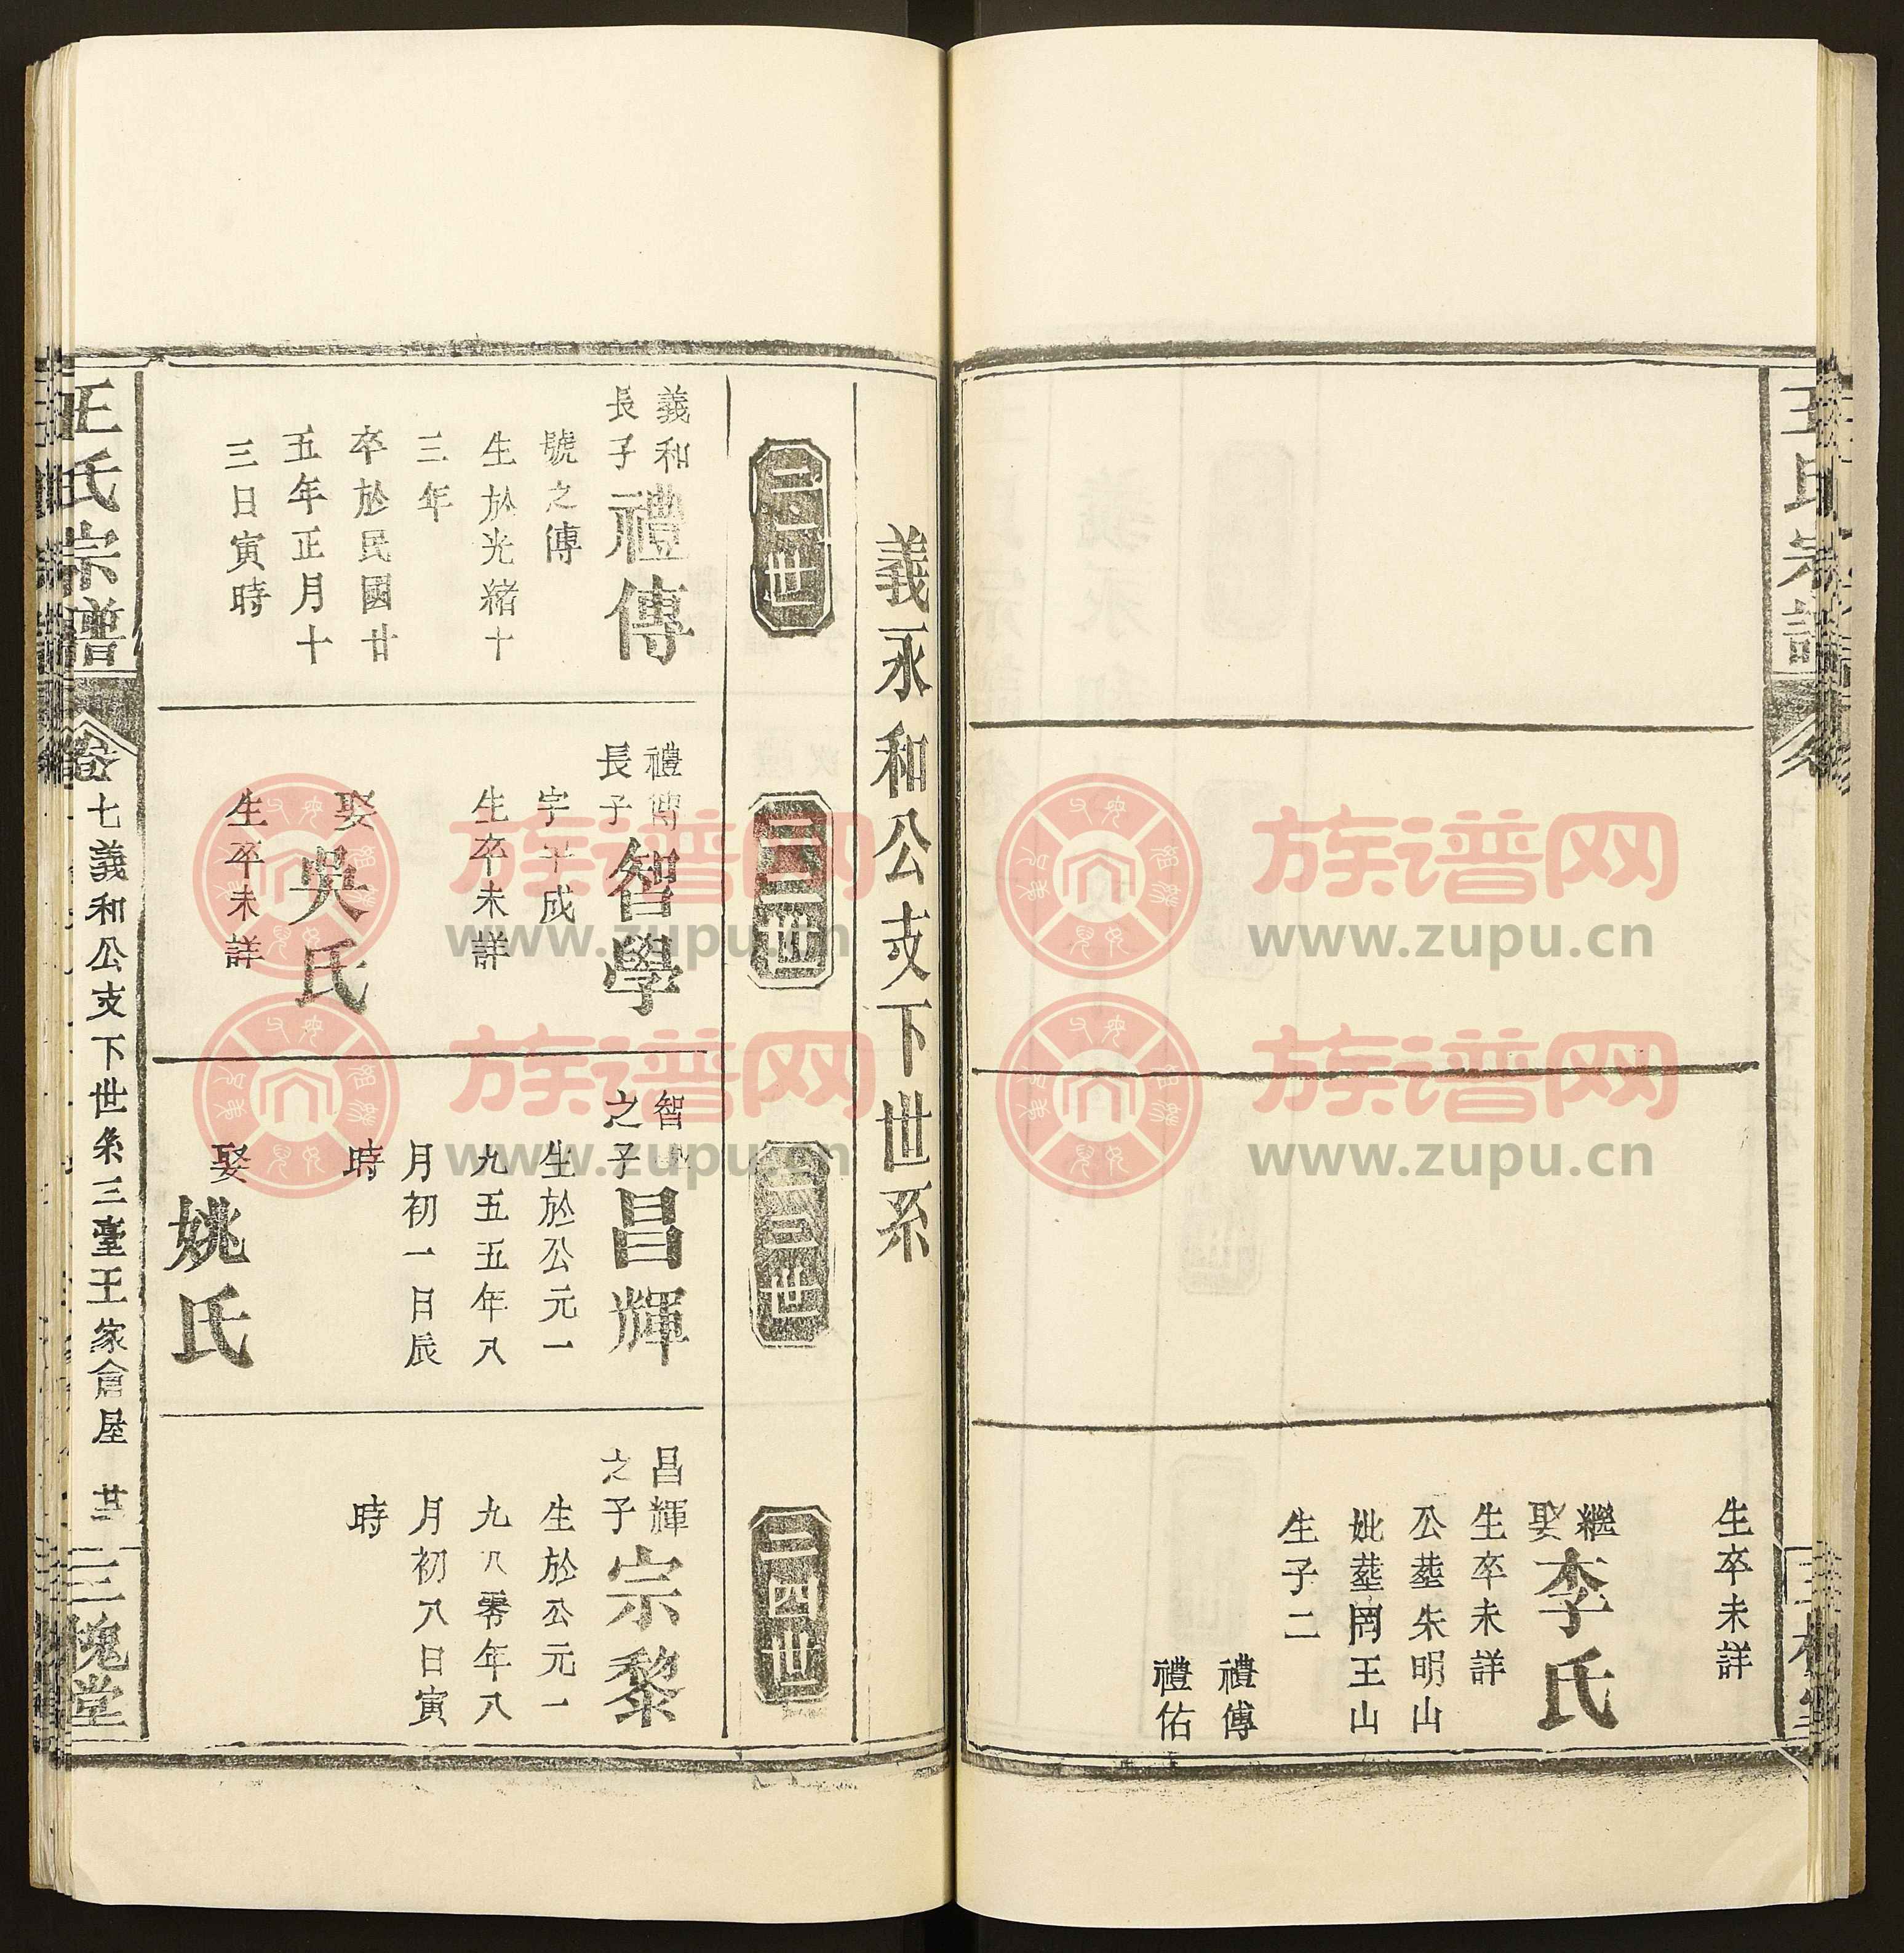 王氏宗譜
生卒未詳
繼娶李氏
生卒未詳
公塟朱明山
妣塟罔王山
生子二
禮傳
禮佑
義永和公支下世系
二一世
義和長子禮傳
號之傳
生於光緒十
三年
卒於民國廿
五年正月十
三日寅時
二二世
禮傳長子智學
生卒未詳
娶吳氏
生卒未詳
二三世
之子昌輝
生於公元一
九五五年八
月初一日辰
時
娶姚氏
二四世
昌輝之子宗黎
生於公元一
九八零年八
月初八日寅
時
王氏宗譜
卷七義和公支下世系三臺王家會屋
三槐堂
族谱网
www.zupu.cn
族谱网
www.zupu.cn
族谱网
www.zupu.cn
族谱网
www.zupu.cn